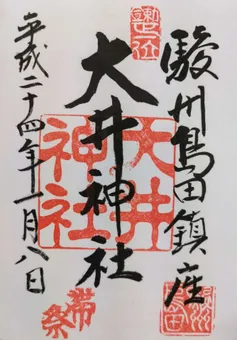 駿州島田鎮座
大井神社
平成二十四年一月八日
大井
神社
帯祭